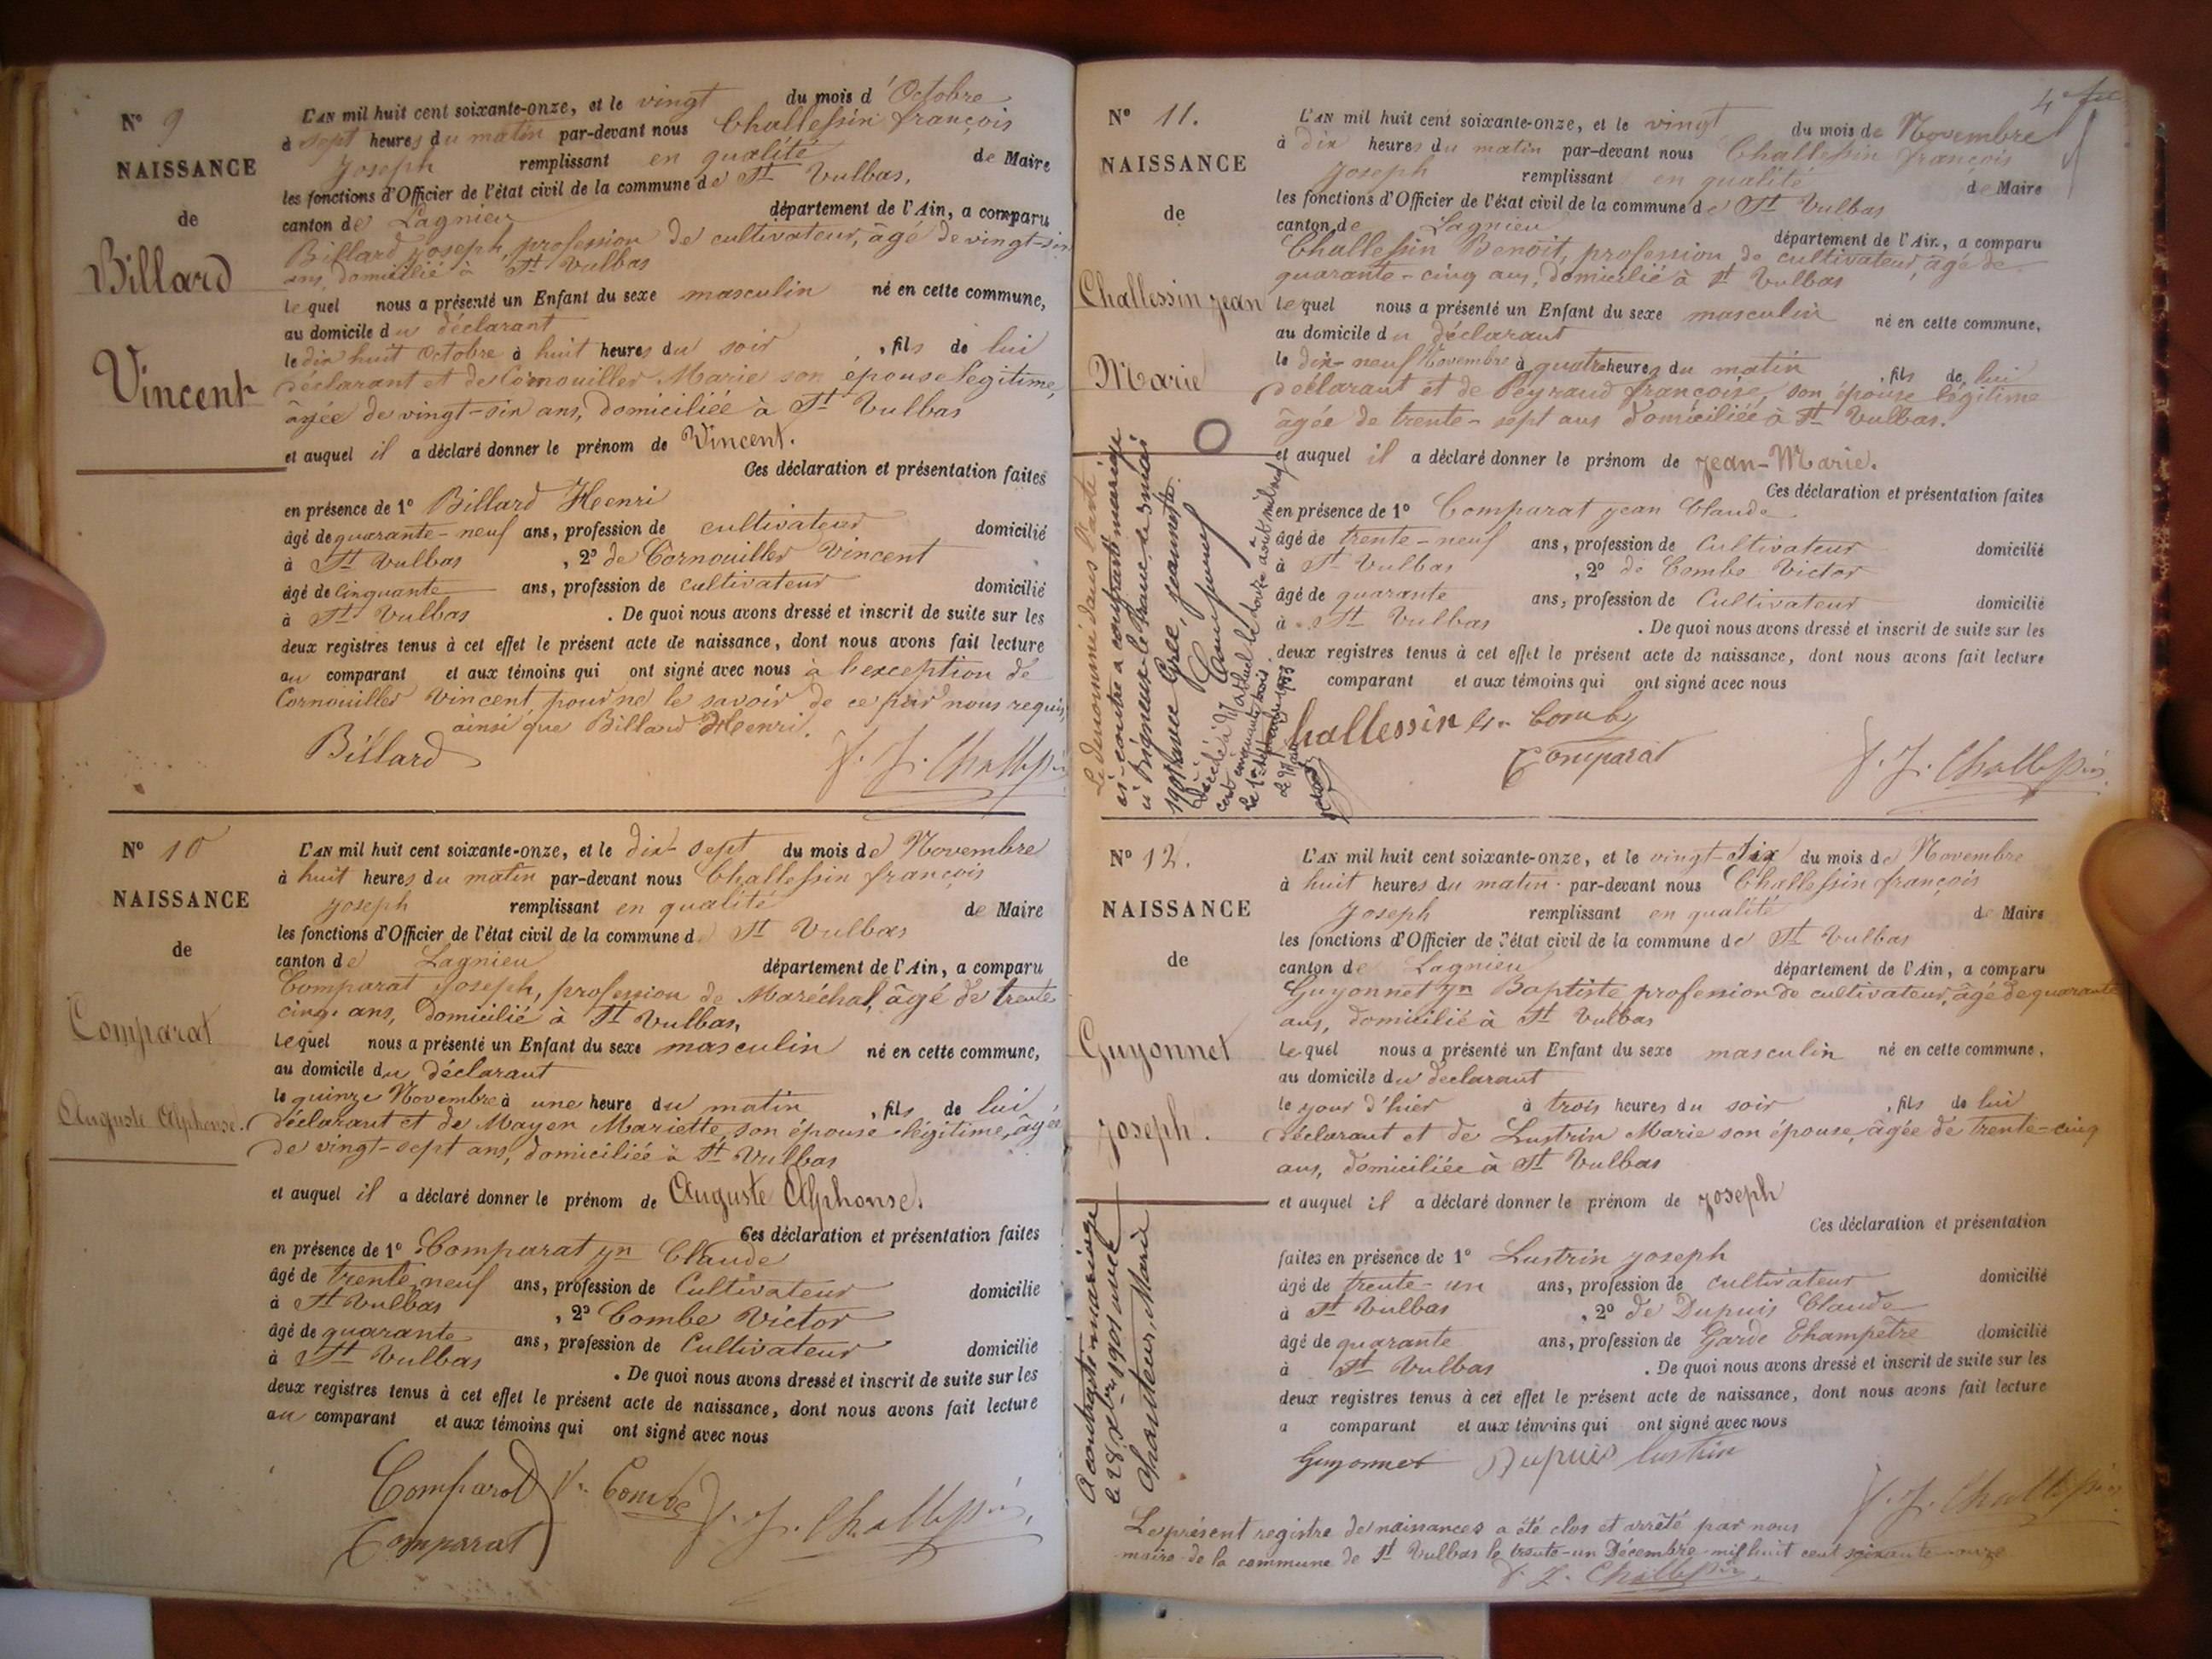 N° 9
NAISSANCE
de
Billard
Vincent
L'AN mil huit cent soixante-onze, et le vingt du mois d'Octobre
à sept heures du matin par-devant nous Challessin françois
Joseph remplissant en qualité de Maire
les fonctions d'Officier de l'état civil de la commune de St Vulbas,
canton de Lagnieu département de l'Ain, a comparu
Billard Joseph, profession de cultivateur, âgé de vingt-six
ans, domicilié à St Vulbas
lequel nous a présenté un Enfant du sexe masculin né en cette commune,
au domicile du déclarant
le dix huit Octobre à huit heures du soir, fils de lui
déclarant et de Cornouiller Marie son épouse légitime,
âgée de vingt-six ans, domiciliée à St Vulbas
et auquel il a déclaré donner le prénom de Vincent.
Ces déclaration et présentation faites
en présence de 1° Billard Henri
âgé de quarante-neuf ans, profession de cultivateur domicilié
à St Vulbas, 2° de Cornouiller Vincent
âgé de Cinquante ans, profession de cultivateur domicilié
à St Vulbas. De quoi nous avons dressé et inscrit de suite sur les
deux registres tenus à cet effet le présent acte de naissance, dont nous avons fait lecture
au comparant et aux témoins qui ont signé avec nous à l'exception de
Cornouiller Vincent, pour ne le savoir de ce par nous requis
ainsi que Billard Henri.
Billard F. J. Challessin
N° 10
NAISSANCE
de
Comparat
Auguste Alphonse.
L'AN mil huit cent soixante-onze, et le dix-sept du mois de Novembre
à huit heures du matin par-devant nous Challessin françois
Joseph remplissant en qualité de Maire
les fonctions d'Officier de l'état civil de la commune d St Vulbas
canton de Lagnieu département de l'Ain, a comparu
Comparat Joseph, profession de Maréchal, âgé de trente
cinq ans, domicilié à St Vulbas,
lequel nous a présenté un Enfant du sexe masculin né en cette commune,
au domicile du déclarant
le quinze Novembre à une heure du matin, fils de lui
déclarant et de Mayen Mariette, son épouse légitime, âgée
de vingt-sept ans, domiciliée à St Vulbas
et auquel il a déclaré donner le prénom de Auguste Alphonse.
Ces déclaration et présentation faites
en présence de 1° Comparat Jn Claude
âgé de trente neuf ans, profession de Cultivateur domicilié
à St Vulbas, 2° Combe Victor
âgé de quarante ans, profession de Cultivateur domicilié
à St Vulbas. De quoi nous avons dressé et inscrit de suite sur les
deux registres tenus à cet effet le présent acte de naissance, dont nous avons fait lecture
au comparant et aux témoins qui ont signé avec nous
Comparat V. Combe F. J. Challessin
Comparat
4
N° 11.
NAISSANCE
de
Challessin Jean
Marie
L'AN mil huit cent soixante-onze, et le vingt du mois de Novembre
à dix heures du matin par-devant nous Challessin françois
Joseph remplissant en qualité de Maire
les fonctions d'Officier de l'état civil de la commune de St Vulbas
canton de Lagnieu département de l'Ain, a comparu
Challessin Benoît, profession de cultivateur, âgé de
quarante-cinq ans, domicilié à St Vulbas
lequel nous a présenté un Enfant du sexe masculin né en cette commune,
au domicile du déclarant
le dix-neuf Novembre à quatre heures du matin, fils de lui
déclarant et de Peyraud françoise, son épouse légitime
âgée de trente-sept ans domiciliée à St Vulbas.
et auquel il a déclaré donner le prénom de Jean-Marie.
Ces déclaration et présentation faites
en présence de 1° Comparat Jean Claude
âgé de trente-neuf ans, profession de Cultivateur domicilié
à St Vulbas, 2° de Combe Victor
âgé de quarante ans, profession de Cultivateur domicilié
à St Vulbas. De quoi nous avons dressé et inscrit de suite sur les
deux registres tenus à cet effet le présent acte de naissance, dont nous avons fait lecture
comparant et aux témoins qui ont signé avec nous
Challessin V. Combe
Comparat F. J. Challessin
Le dénommé dans l'acte
ci-contre a contracté mariage
à le 5 mars
1901 avec Jeannette.
Décédé à le douze août mil neuf
cent cinquante trois
le 1er 1953
Le Maire
N° 12.
NAISSANCE
de
Guyonnet
Joseph.
L'AN mil huit cent soixante-onze, et le vingt-six du mois de Novembre
à huit heures du matin par-devant nous Challessin françois
Joseph remplissant en qualité de Maire
les fonctions d'Officier de l'état civil de la commune de St Vulbas
canton de Lagnieu département de l'Ain, a comparu
Guyonnet Jn Baptiste profession de cultivateur, âgé de quarante
ans, domicilié à St Vulbas
lequel nous a présenté un Enfant du sexe masculin né en cette commune,
au domicile du déclarant
le jour d'hier à trois heures du soir, fils de lui
déclarant et de Lustrin Marie son épouse, âgée de trente-cinq
ans, domiciliée à St Vulbas
et auquel il a déclaré donner le prénom de Joseph
Ces déclaration et présentation
faites en présence de 1° Lustrin Joseph
âgé de trente-un ans, profession de cultivateur domicilié
à St Vulbas, 2° de Dupuis Claude
âgé de quarante ans, profession de Garde Champêtre domicilié
à St Vulbas. De quoi nous avons dressé et inscrit de suite sur les
deux registres tenus à cet effet le présent acte de naissance, dont nous avons fait lecture
a comparant et aux témoins qui ont signé avec nous
Guyonnet Dupuis Lustrin
F. J. Challessin
A contracté mariage
le 28 xbre 1901 avec
Chanteur, Marie
Le présent registre de naissances a été clos et arrêté par nous
maire de la commune de St Vulbas le trente-un Décembre mil huit cent soixante-onze
F. J. Challessin